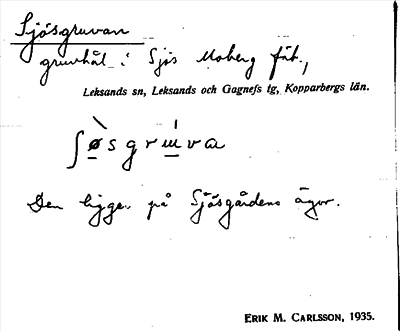 Sjösgruvan
gruvhål i Sjös Moberg fäb.,
Leksands sn, Leksands och Gagnefs tg, Kopparbergs län.
ʃøsgrɯva
Den ligger på Sjösgårdens ägor.
ERIK M. CARLSSON, 1935.